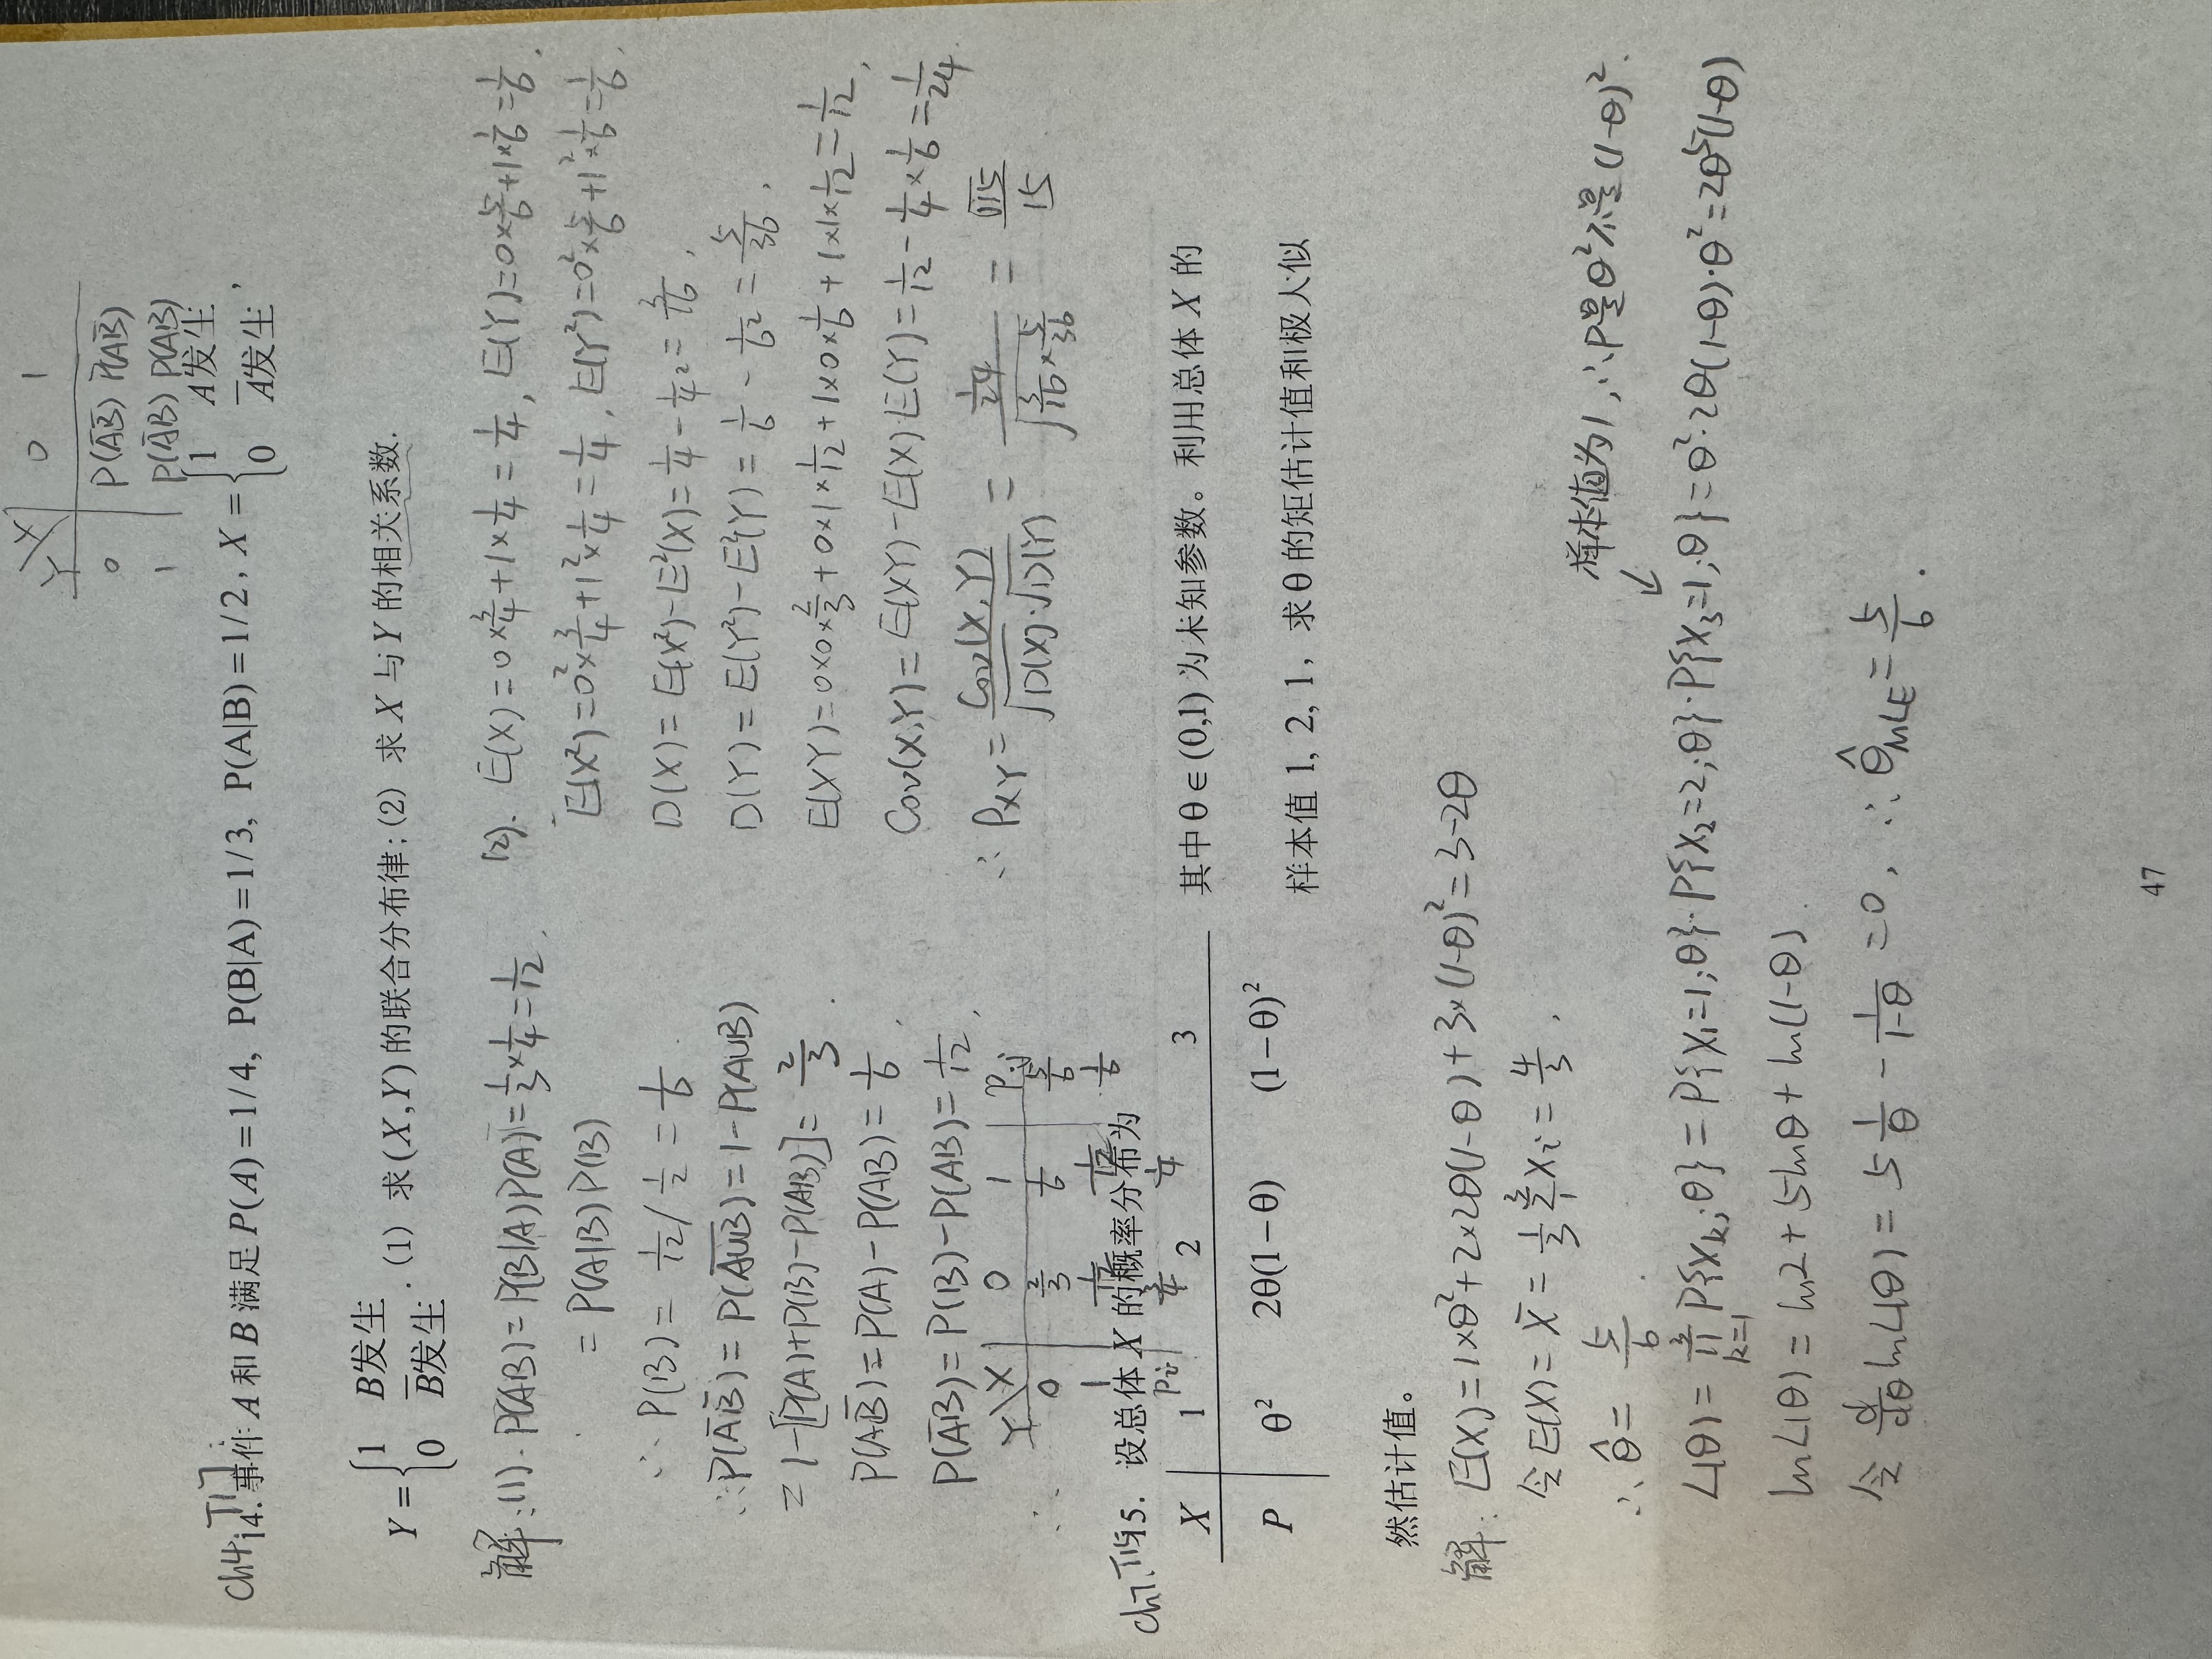 Y\X 0 1
0 P(A̅B̅) P(AB̅)
1 P(A̅B) P(AB)
Ch4. T17:
14. 事件 A 和 B 满足 P(A)=1/4, P(B|A)=1/3, P(A|B)=1/2, X={1 A发生 0 A̅发生,
Y={1 B发生 0 B̅发生. (1) 求(X,Y)的联合分布律;(2) 求 X 与 Y 的相关系数.
解:(1). P(AB)=P(B|A)P(A)=1/3×1/4=1/12,
=P(A|B)P(B)
∴P(B)=1/12/1/2=1/6.
∴P(A̅B̅)=P(A∪B‾)=1-P(A∪B)
=1-[P(A)+P(B)-P(AB)]=2/3.
P(AB̅)=P(A)-P(AB)=1/6,
P(A̅B)=P(B)-P(AB)=1/12,
∴ Y\X 0 1 P.j
0 2/3 1/6 5/6
1 1/12 1/12 1/6
Pi 3/4 1/4
(2). E(X)=0×3/4+1×1/4=1/4, E(Y)=0×5/6+1×1/6=1/6,
E(X²)=0²×3/4+1²×1/4=1/4, E(Y²)=0²×5/6+1²×1/6=1/6,
D(X)=E(X²)-E²(X)=1/4-1/4²=3/16,
D(Y)=E(Y²)-E²(Y)=1/6-1/6²=5/36,
E(XY)=0×0×2/3+0×1×1/12+1×0×1/6+1×1×1/12=1/12,
Cov(X,Y)=E(XY)-E(X)·E(Y)=1/12-1/4×1/6=1/24.
∴ρXY=Cov(X,Y)/√D(X)·√D(Y)=1/24/√(3/16×5/36)=√15/15
Ch7. T15
15. 设总体 X 的概率分布为
X 1 2 3
P θ² 2θ(1−θ) (1−θ)²
其中θ∈(0,1) 为未知参数。利用总体 X 的
样本值 1, 2, 1, 求θ的矩估计值和极大似
然估计值。
解: E(X)=1×θ²+2×2θ(1-θ)+3×(1-θ)²=3-2θ
令E(X)=X̅=1/3 3Σ1 Xi=4/3,
∴θ̂=5/6.
样本值为1,∴P是θ²不是(1-θ)².
↙
L(θ)=3∏k=1 P{xk;θ}=P{x1=1;θ}·P{x2=2;θ}·P{x3=1;θ}=θ²·2θ(1-θ)·θ²=2θ⁵(1-θ)
lnL(θ)=ln2+5lnθ+ln(1-θ).
令 d/dθ lnL(θ)=5 1/θ-1/1-θ=0, ∴θ̂MLE=5/6.
47